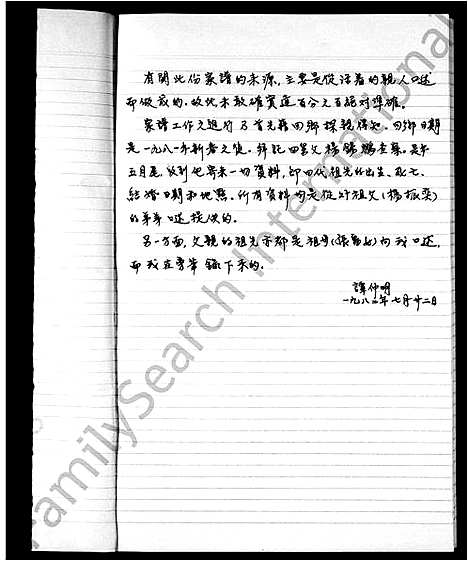 有關此份家譜的來源,主要是從活着的親人口述
而做成的。故此未敢確實這百分之百絕對準確。
家譜工作之組成乃首先藉回鄉探親得知。回鄉日期
是一九八一年新春之後。拜託四叔父楊錦鵬查尋。是年
五月尾,收到他寄來一切資料,即四代祖先的出生、死亡、
結婚日期和地點。所有資料均是從好祖父(楊振奕)
的弟弟口述提供的。
另一方面,父親的祖先亦都是祖母(張 )向我口述,
而我在旁筆錄下來的。
譚仲明
一九八二年七月廿二日
FamilySearch International